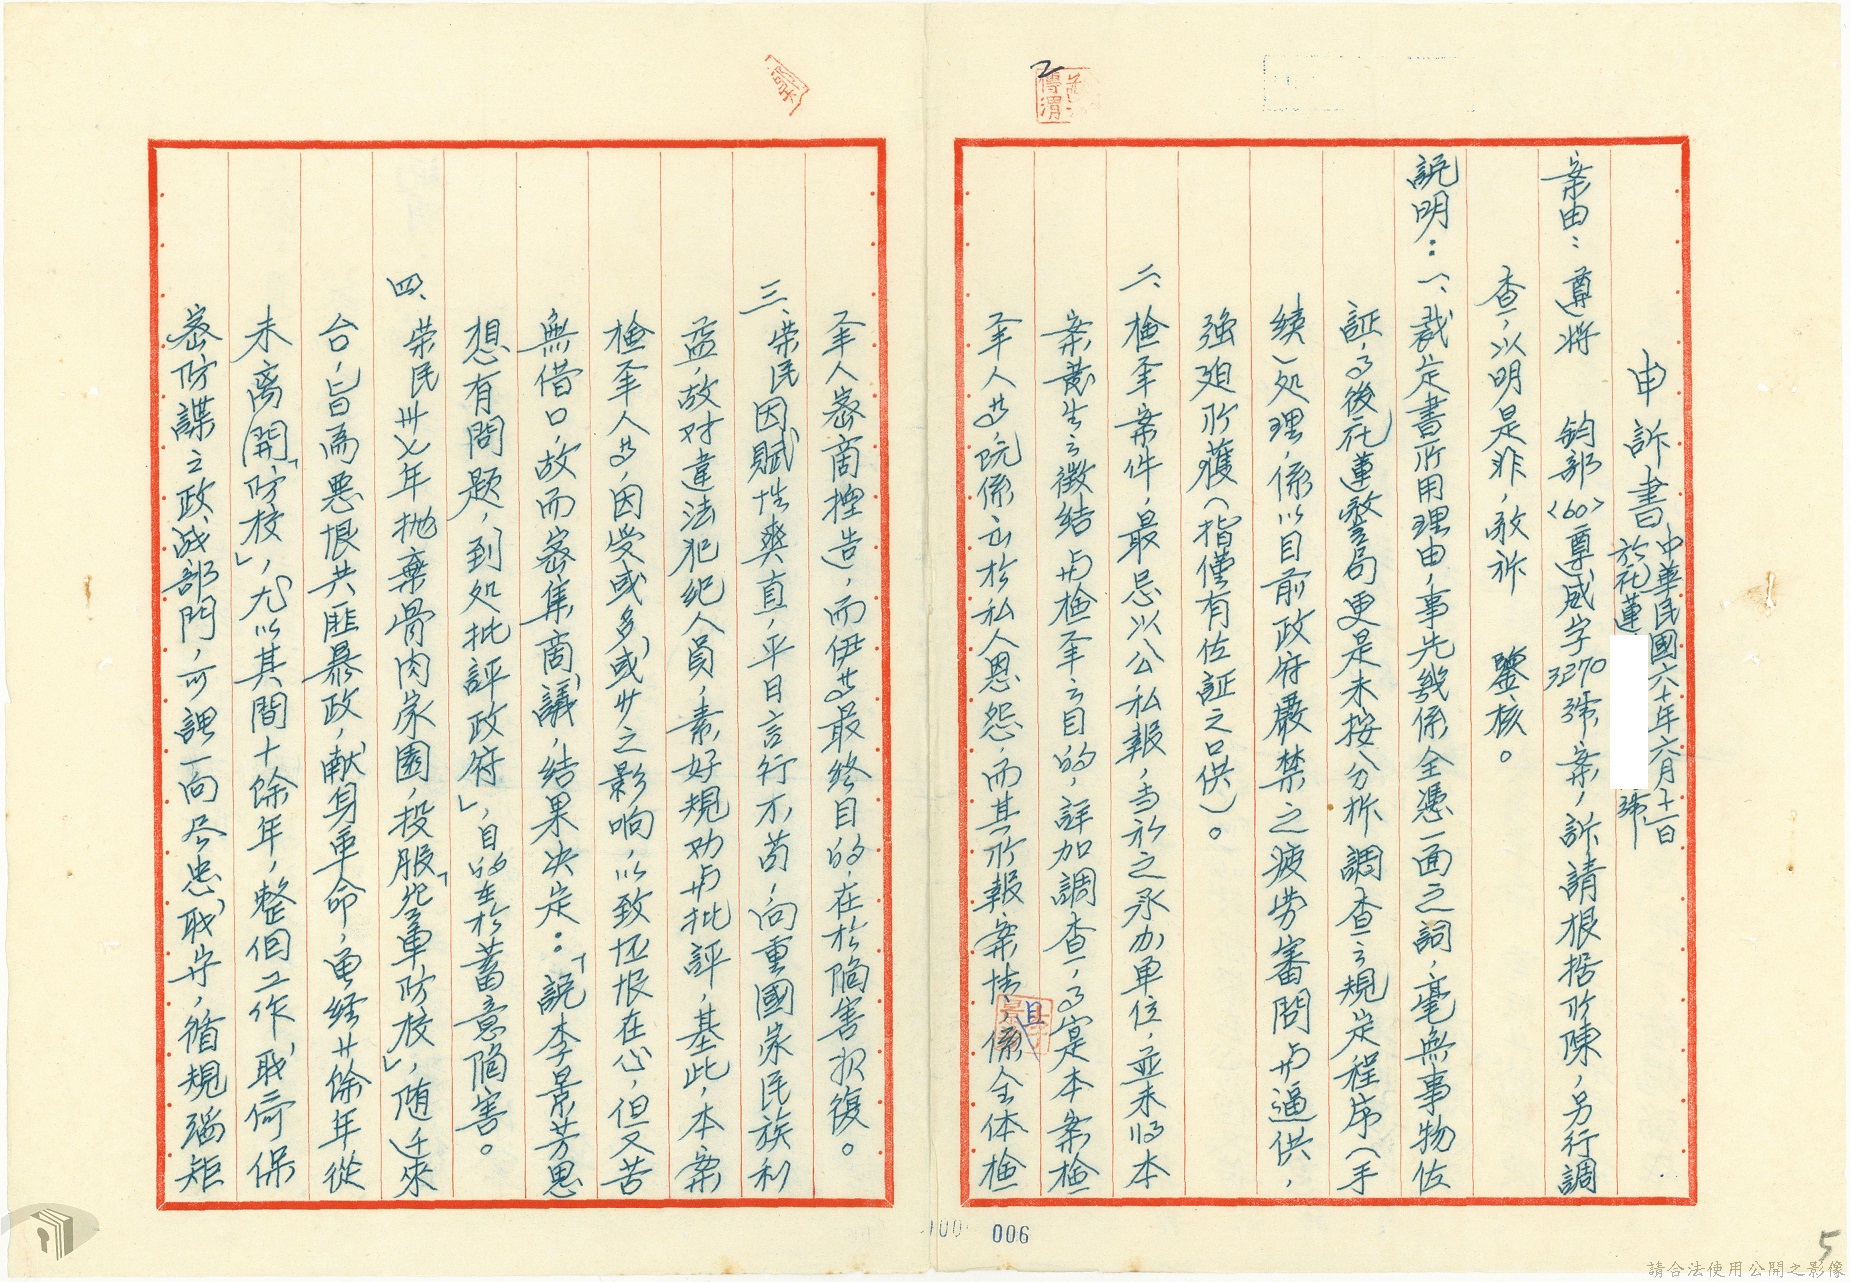 申訴書
中華民國六十年六月十一日
於花蓮
號
案由：遵將　鈞部<60>尊威字3270號案，訴請根据所陳，另行調
查，以明是非，敬祈　鑒核。
說明：一、裁定書所用理由，事先幾係全憑一面之詞，毫無事物佐
証，後花蓮警局更是未按分析調查之規定程序（手
續）処理，係以目前政府嚴禁之疲劳審問与逼供，
強廹所獲（指僅有佐証之口供）。
二、檢举案件，最忌以公私報，当初之承办單位，並未將本
案發生之徵結与檢举之目的，詳加調查，实本案檢
举人等，既係出於私人恩怨，而其所報案情，係全体檢
举人密商揑造，而伊等最終目的，在於陷害报復。
三、荣民因賦性爽直，平日言行不苟，向重國家民族利
益，故对違法犯紀人員，素好規劝与批評，基此，本案
檢举人等，因受或多、或少之影响，以致怀恨在心，但又苦
無借口，故而密集商議，結果决定：「說李景芳思
想有問题，到処批評政府」，目的在於蓄意陷害。
四、荣民卅七年抛棄骨肉家園，投服「空軍防校」，随迁來
台，旨為惡恨共匪暴政，献身革命，虽經廿餘年從
未离開「防校」，尤以其間十餘年，整個工作，职司保
密防諜之政战部門，可謂一向尽忠职守，循規蹈矩
2
006
5
請合法使用公開之影像